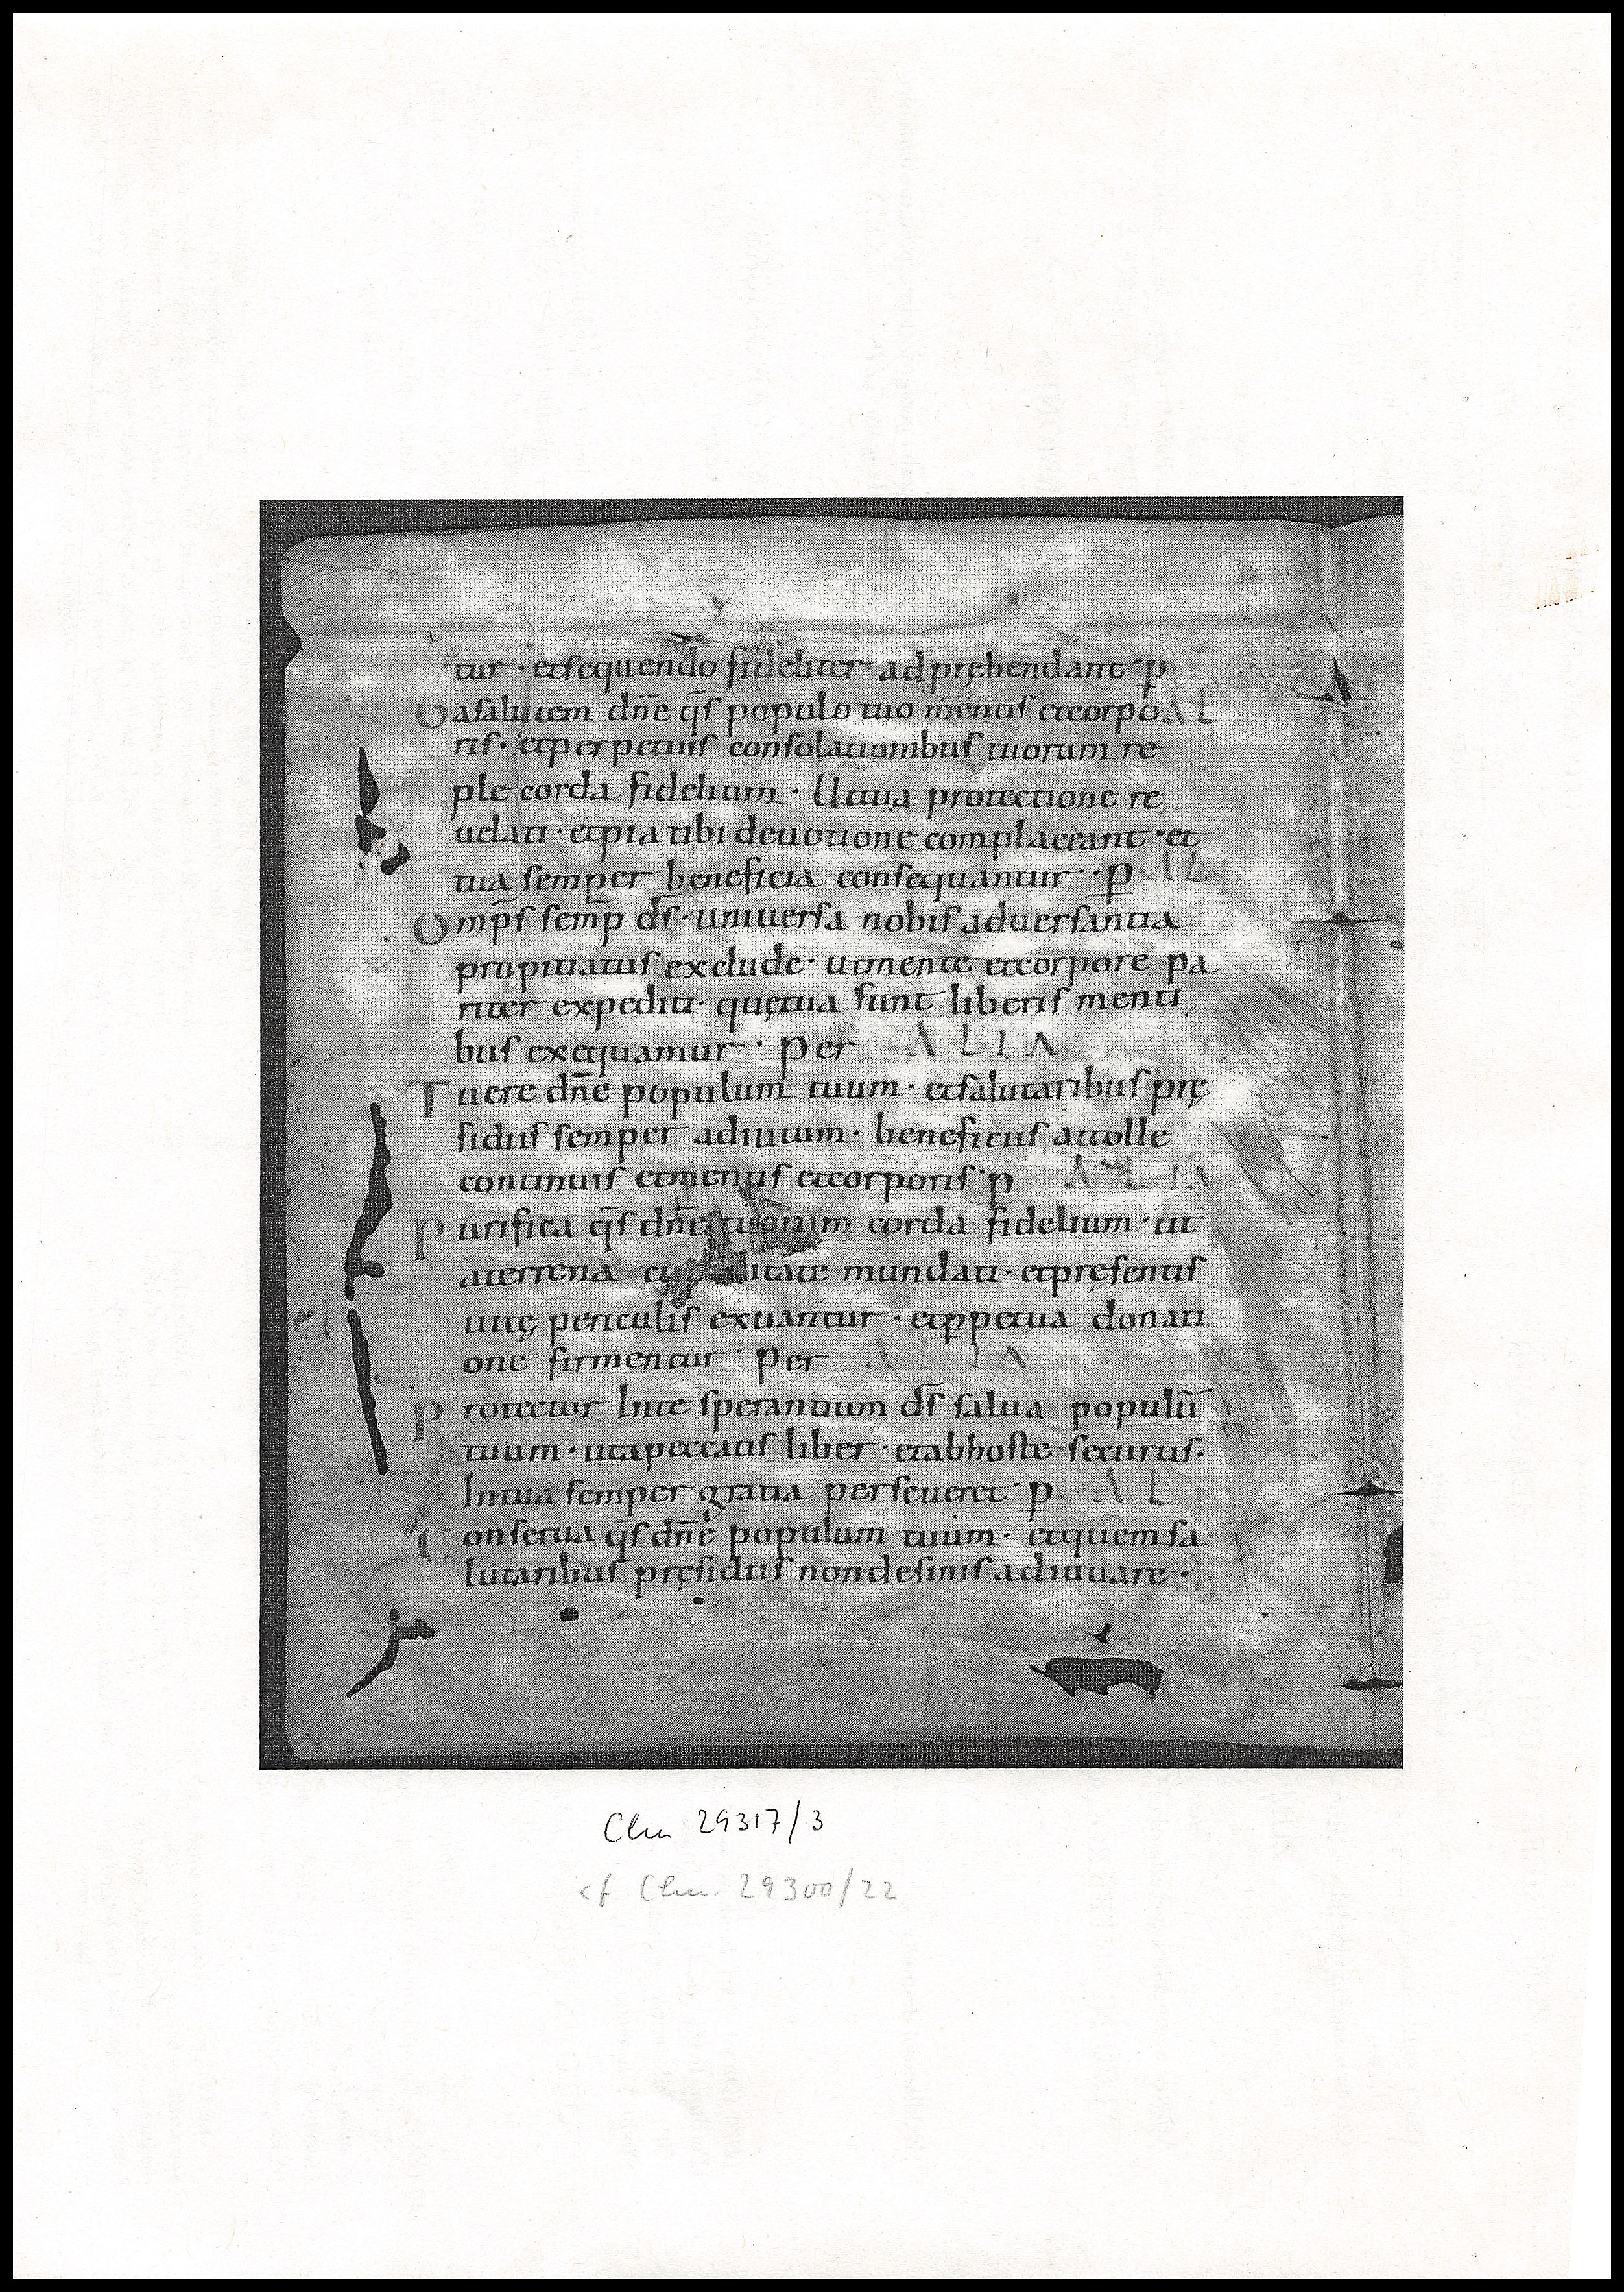 tur · et sequendo fideliter adpręhendant · p̄
Da salutem dn̄e q̄s populo tuo mentis et corpo AL
ris · et perpetuis consolationibus tuorum re
ple corda fidelium · Ut tua protectione re
uelati · et pia tibi deuotione complaceant · et
tua semper beneficia consequantur · p̄ AL
Omp̄s semp̄ ds̄ · uniuersa nobis aduersantia
propitiatus exclude · ut mente et corpore pa
riter expediti · quę tua sunt liberis menti
bus exequamur · Per ALIA
Tuere dn̄e populum tuum · et salutaribus prę
sidiis semper adiutum · beneficiis attolle
continuis et mentis et corporis · p̄ ALIA
Purifica q̄s dn̄e tuorum corda fidelium · ut
a terrena cupiditate mundati · et pręsentis
uitę periculis exuantur · et p̱petua donati
one firmentur · Per ALIA
Protector In te sperantium ds̄ salua populū
tuum · ut a peccatis liber · et ab hoste securus ·
In tua semper gratia perseueret · p̄ AL
Conserua q̄s dn̄e populum tuum · et quem sa
lutaribus pręsidiis non desinis adiuuare ·
Clm 29317/3
cf Clm. 29300/22